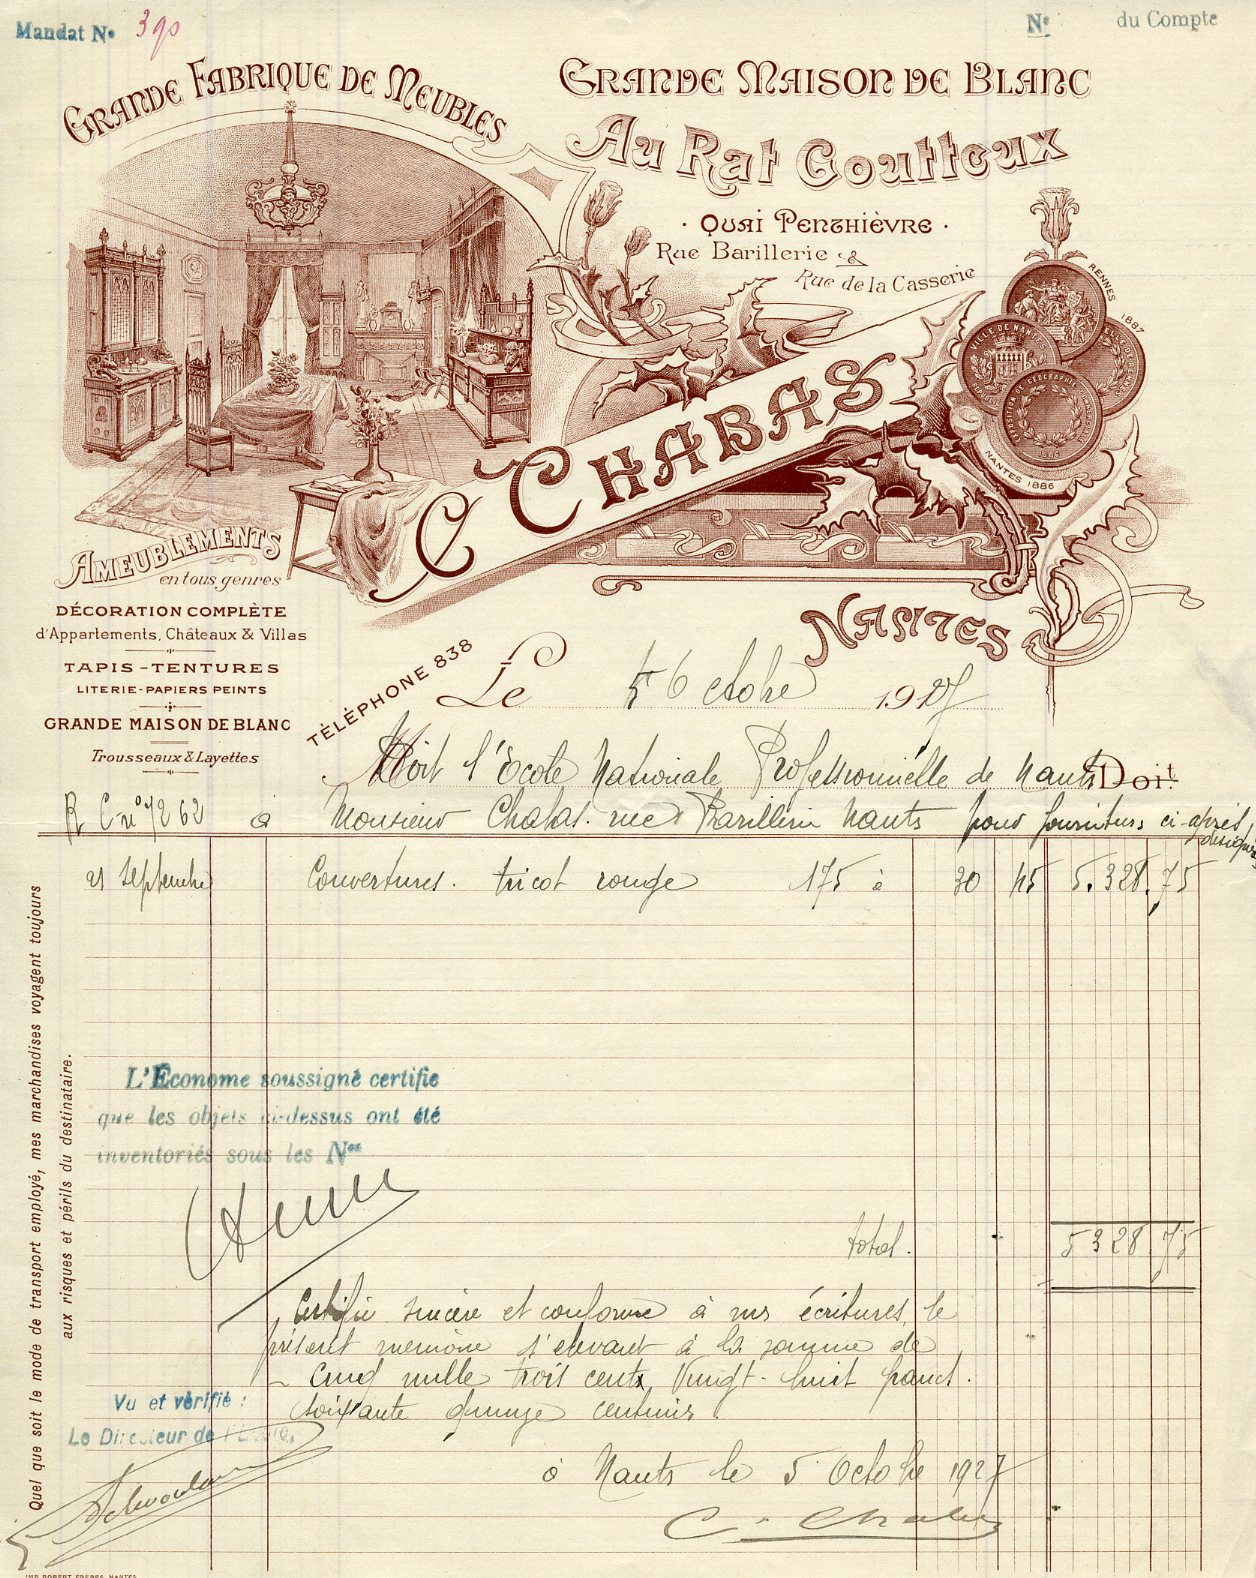 Mandat No 390
No du Compte
GRANDE FABRIQUE DE MEUBLES
GRANDE MAISON DE BLANC
Au Rat Goutteux
· QUAI PENTHIÈVRE ·
Rue Barillerie &
Rue de la Casserie
RENNES 1887
VILLE DE NAN
NANTES 1886
C CHABAS
NANTES
AMEUBLEMENTS
en tous genres
DÉCORATION COMPLÈTE
d'Appartements, Châteaux & Villas
TAPIS - TENTURES
LITERIE - PAPIERS PEINTS
GRANDE MAISON DE BLANC
Trousseaux & Layettes
TÉLÉPHONE 838
Le 5 Octobre 1927
Doit l'École Nationale Professionnielle de Nantes Doit
R C no 7262 à Monsieur Chabas. rue Barillerie Nantes pour fournitures ci-après désignées
21 Septembre Couvertures. tricot rouge 175 à 30 45 5.328.75
L'Économe soussigné certifie
que les objets ci-dessus ont été
inventoriés sous les Nos
total. 5328 75
Certifié sincère et conforme à mes écritures, le
présent mémoire s'élevant à la somme de
Cinq mille trois cents Vingt-huit francs.
Soixante quinze centimes.
Vu et vérifié :
Le Directeur de l'École,
à Nantes le 5 Octobre 1927
C. Chabas
Quel que soit le mode de transport employé, mes marchandises voyagent toujours
aux risques et périls du destinataire.
IMP. ROBERT FRÈRES, NANTES